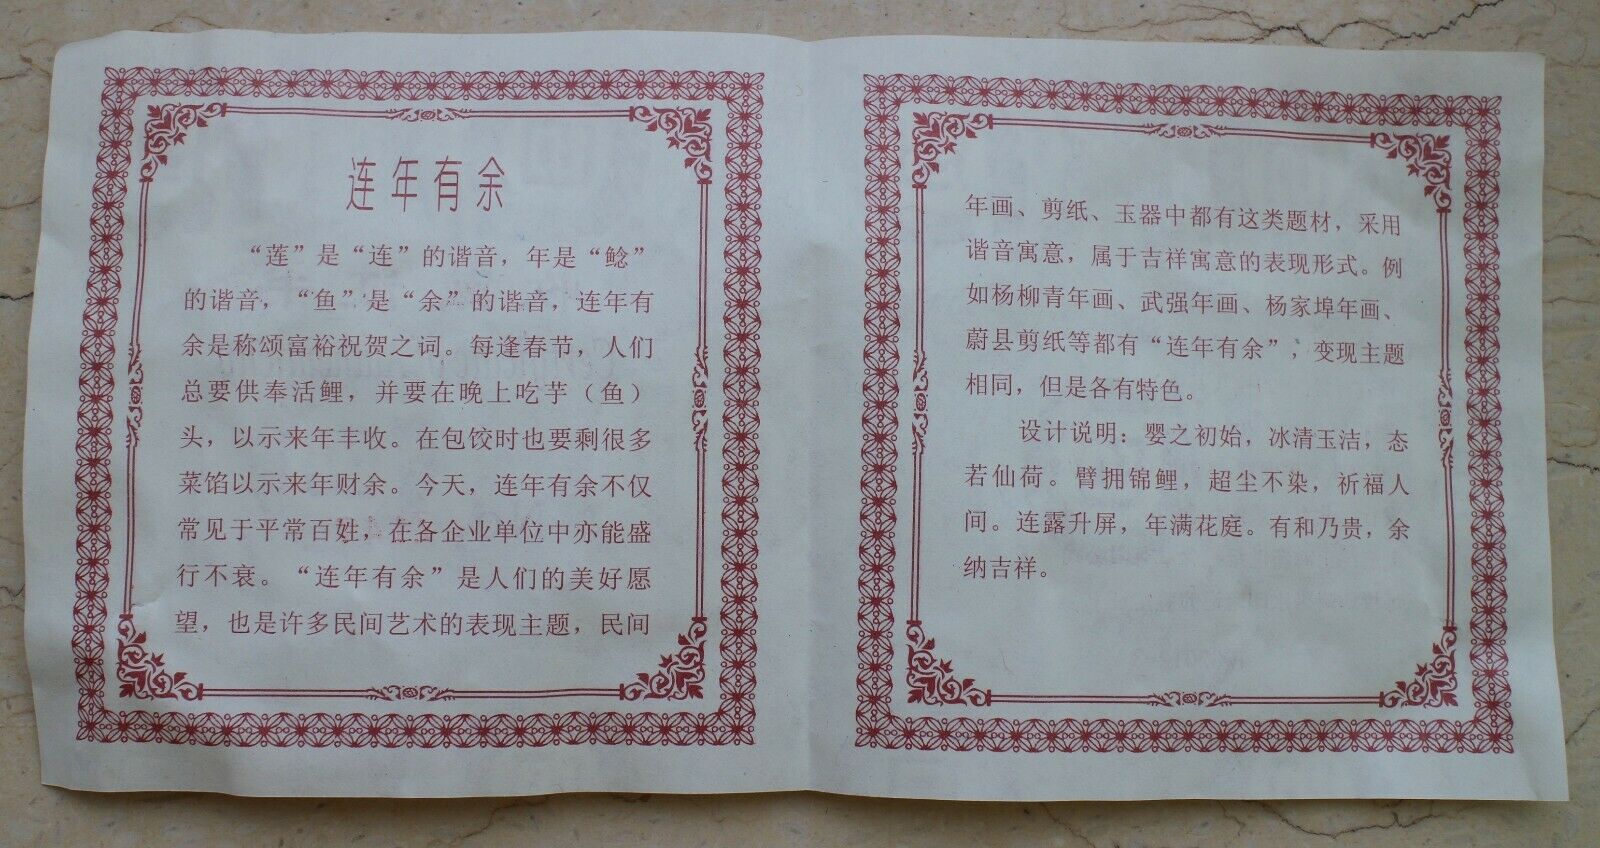 连年有余
“莲”是“连”的谐音，年是“鲶”
的谐音，“鱼”是“余”的谐音，连年有
余是称颂富裕祝贺之词。每逢春节，人们
总要供奉活鲤，并要在晚上吃芋（鱼）
头，以示来年丰收。在包饺时也要剩很多
菜馅以示来年财余。今天，连年有余不仅
常见于平常百姓，在各企业单位中亦能盛
行不衰。“连年有余”是人们的美好愿
望，也是许多民间艺术的表现主题，民间
年画、剪纸、玉器中都有这类题材，采用
谐音寓意，属于吉祥寓意的表现形式。例
如杨柳青年画、武强年画、杨家埠年画、
蔚县剪纸等都有“连年有余”，变现主题
相同，但是各有特色。
设计说明：婴之初始，冰清玉洁，态
若仙荷。臂拥锦鲤，超尘不染，祈福人
间。连露升屏，年满花庭。有和乃贵，余
纳吉祥。